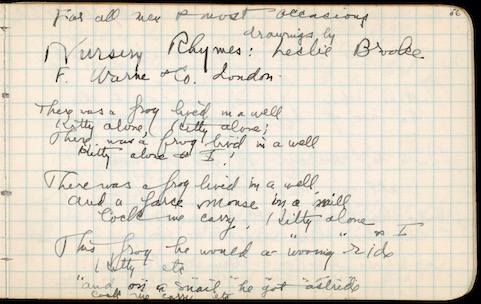 For all men & most occasions
56
drawings by
Nursery Rhymes: Leslie Brooke
F. Warne & Co. London.
There was a frog lived in a well
Kitty alone, Kitty alone;
There was a frog livd in a well
Kitty alone & I!
There was a frog livd in a well
and a farce mouse in a mill
Cock me carry, Kitty alone
& I
This frog he would a "wooing" ride
Kitty etc
"and on a snail" he got "astride
cock me carry etc